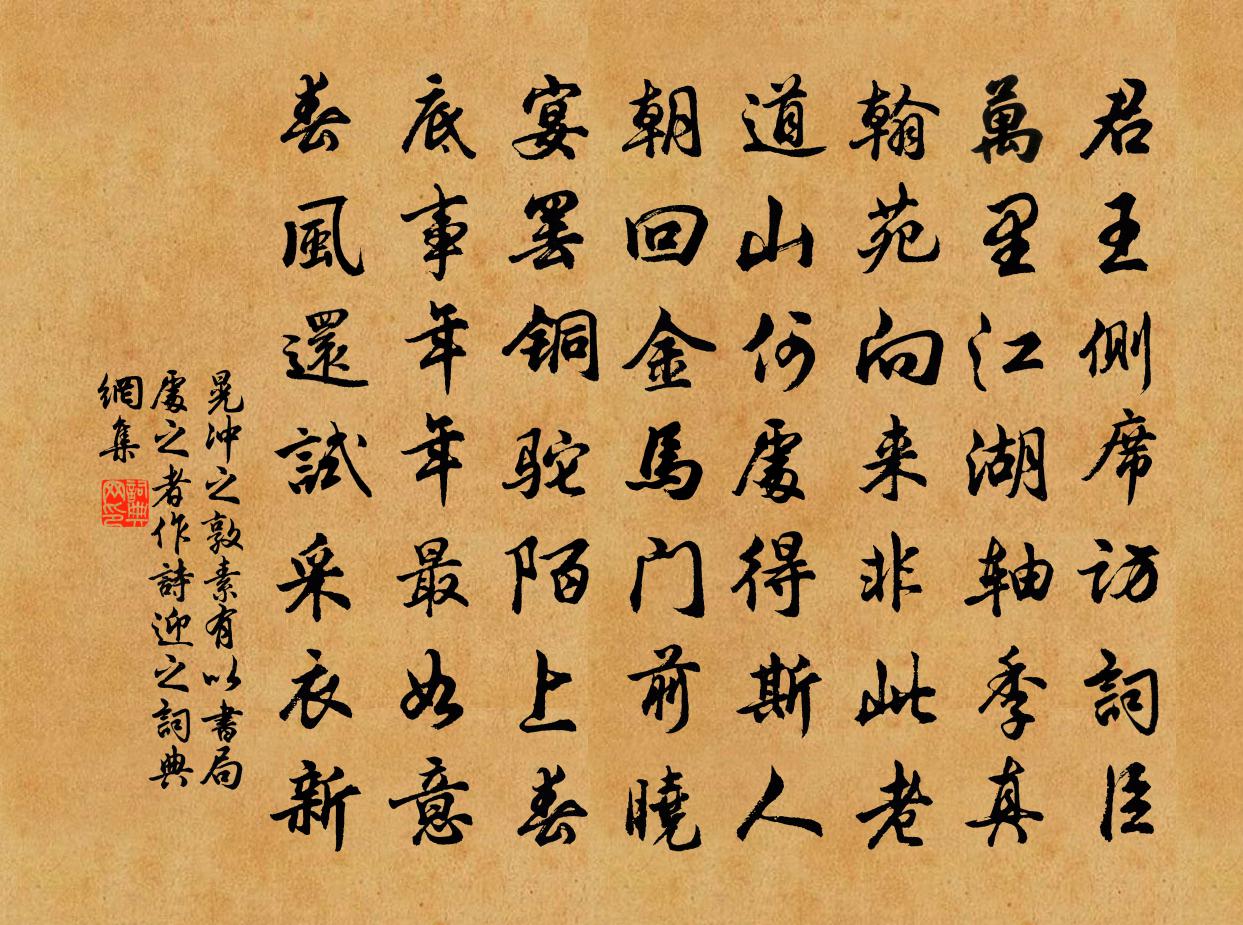 君王側席访詞臣
萬里江湖轴季真
翰苑向来非此老
道山何處得斯人
朝回金馬门前曉
宴罢铜驼陌上春
底事年年最如意
春風還試采衣新
晁冲之敦素有以書局
處之者作詩迎之詞典
網集
詞典網印